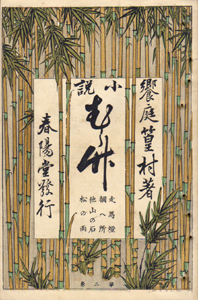 饗庭篁村著
小説
むら竹
走馬燈
へ所
他山の石
松の雨
春陽堂發行